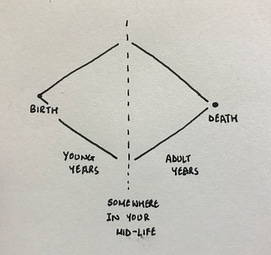 BIRTH
DEATH
YOUNG
YEARS
ADULT
YEARS
SOMEWHERE
IN YOUR
MID-LIFE